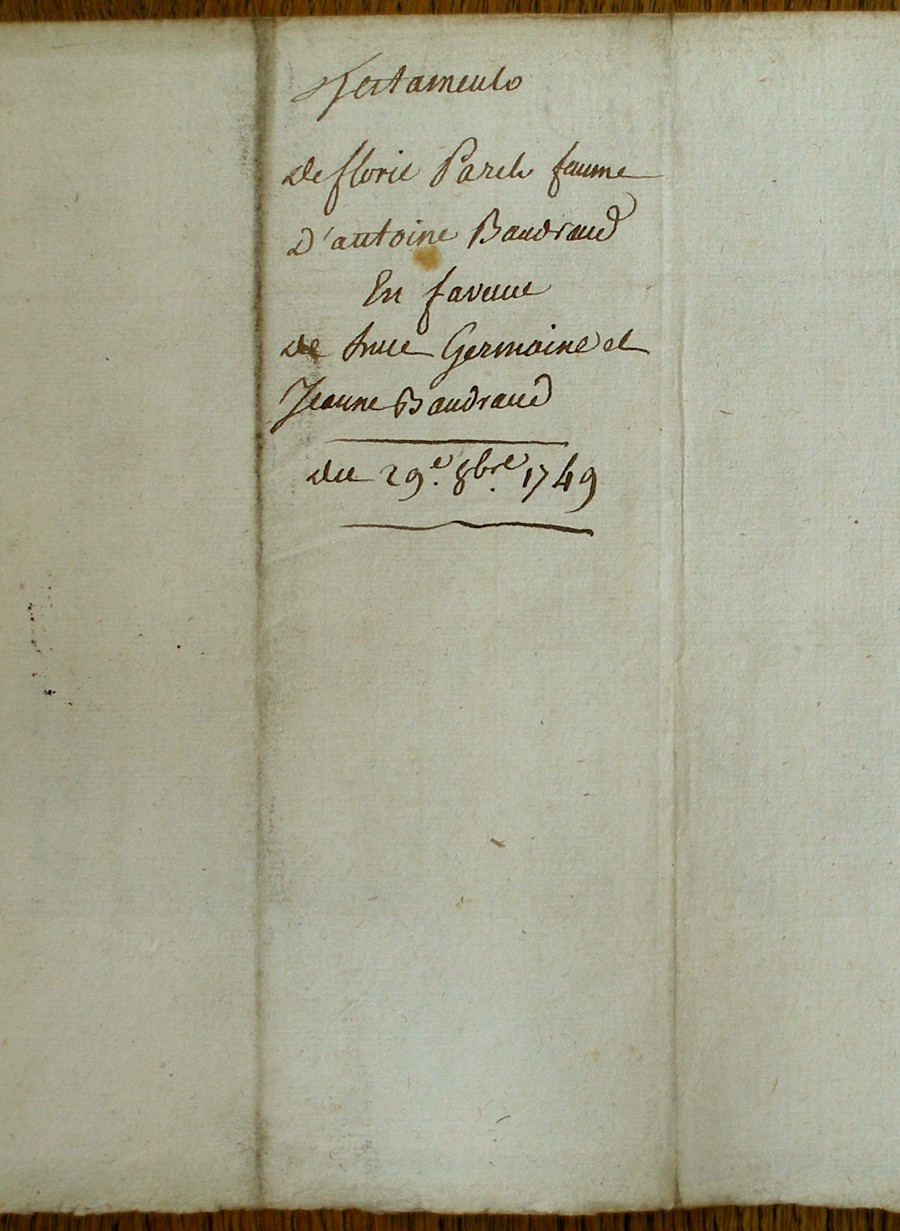 Testament
De florie Paret famme
D'antoine Baudrand
En faveur
de Germaine et
Jeanne Baudrand
du 29.e 8.bre 1749